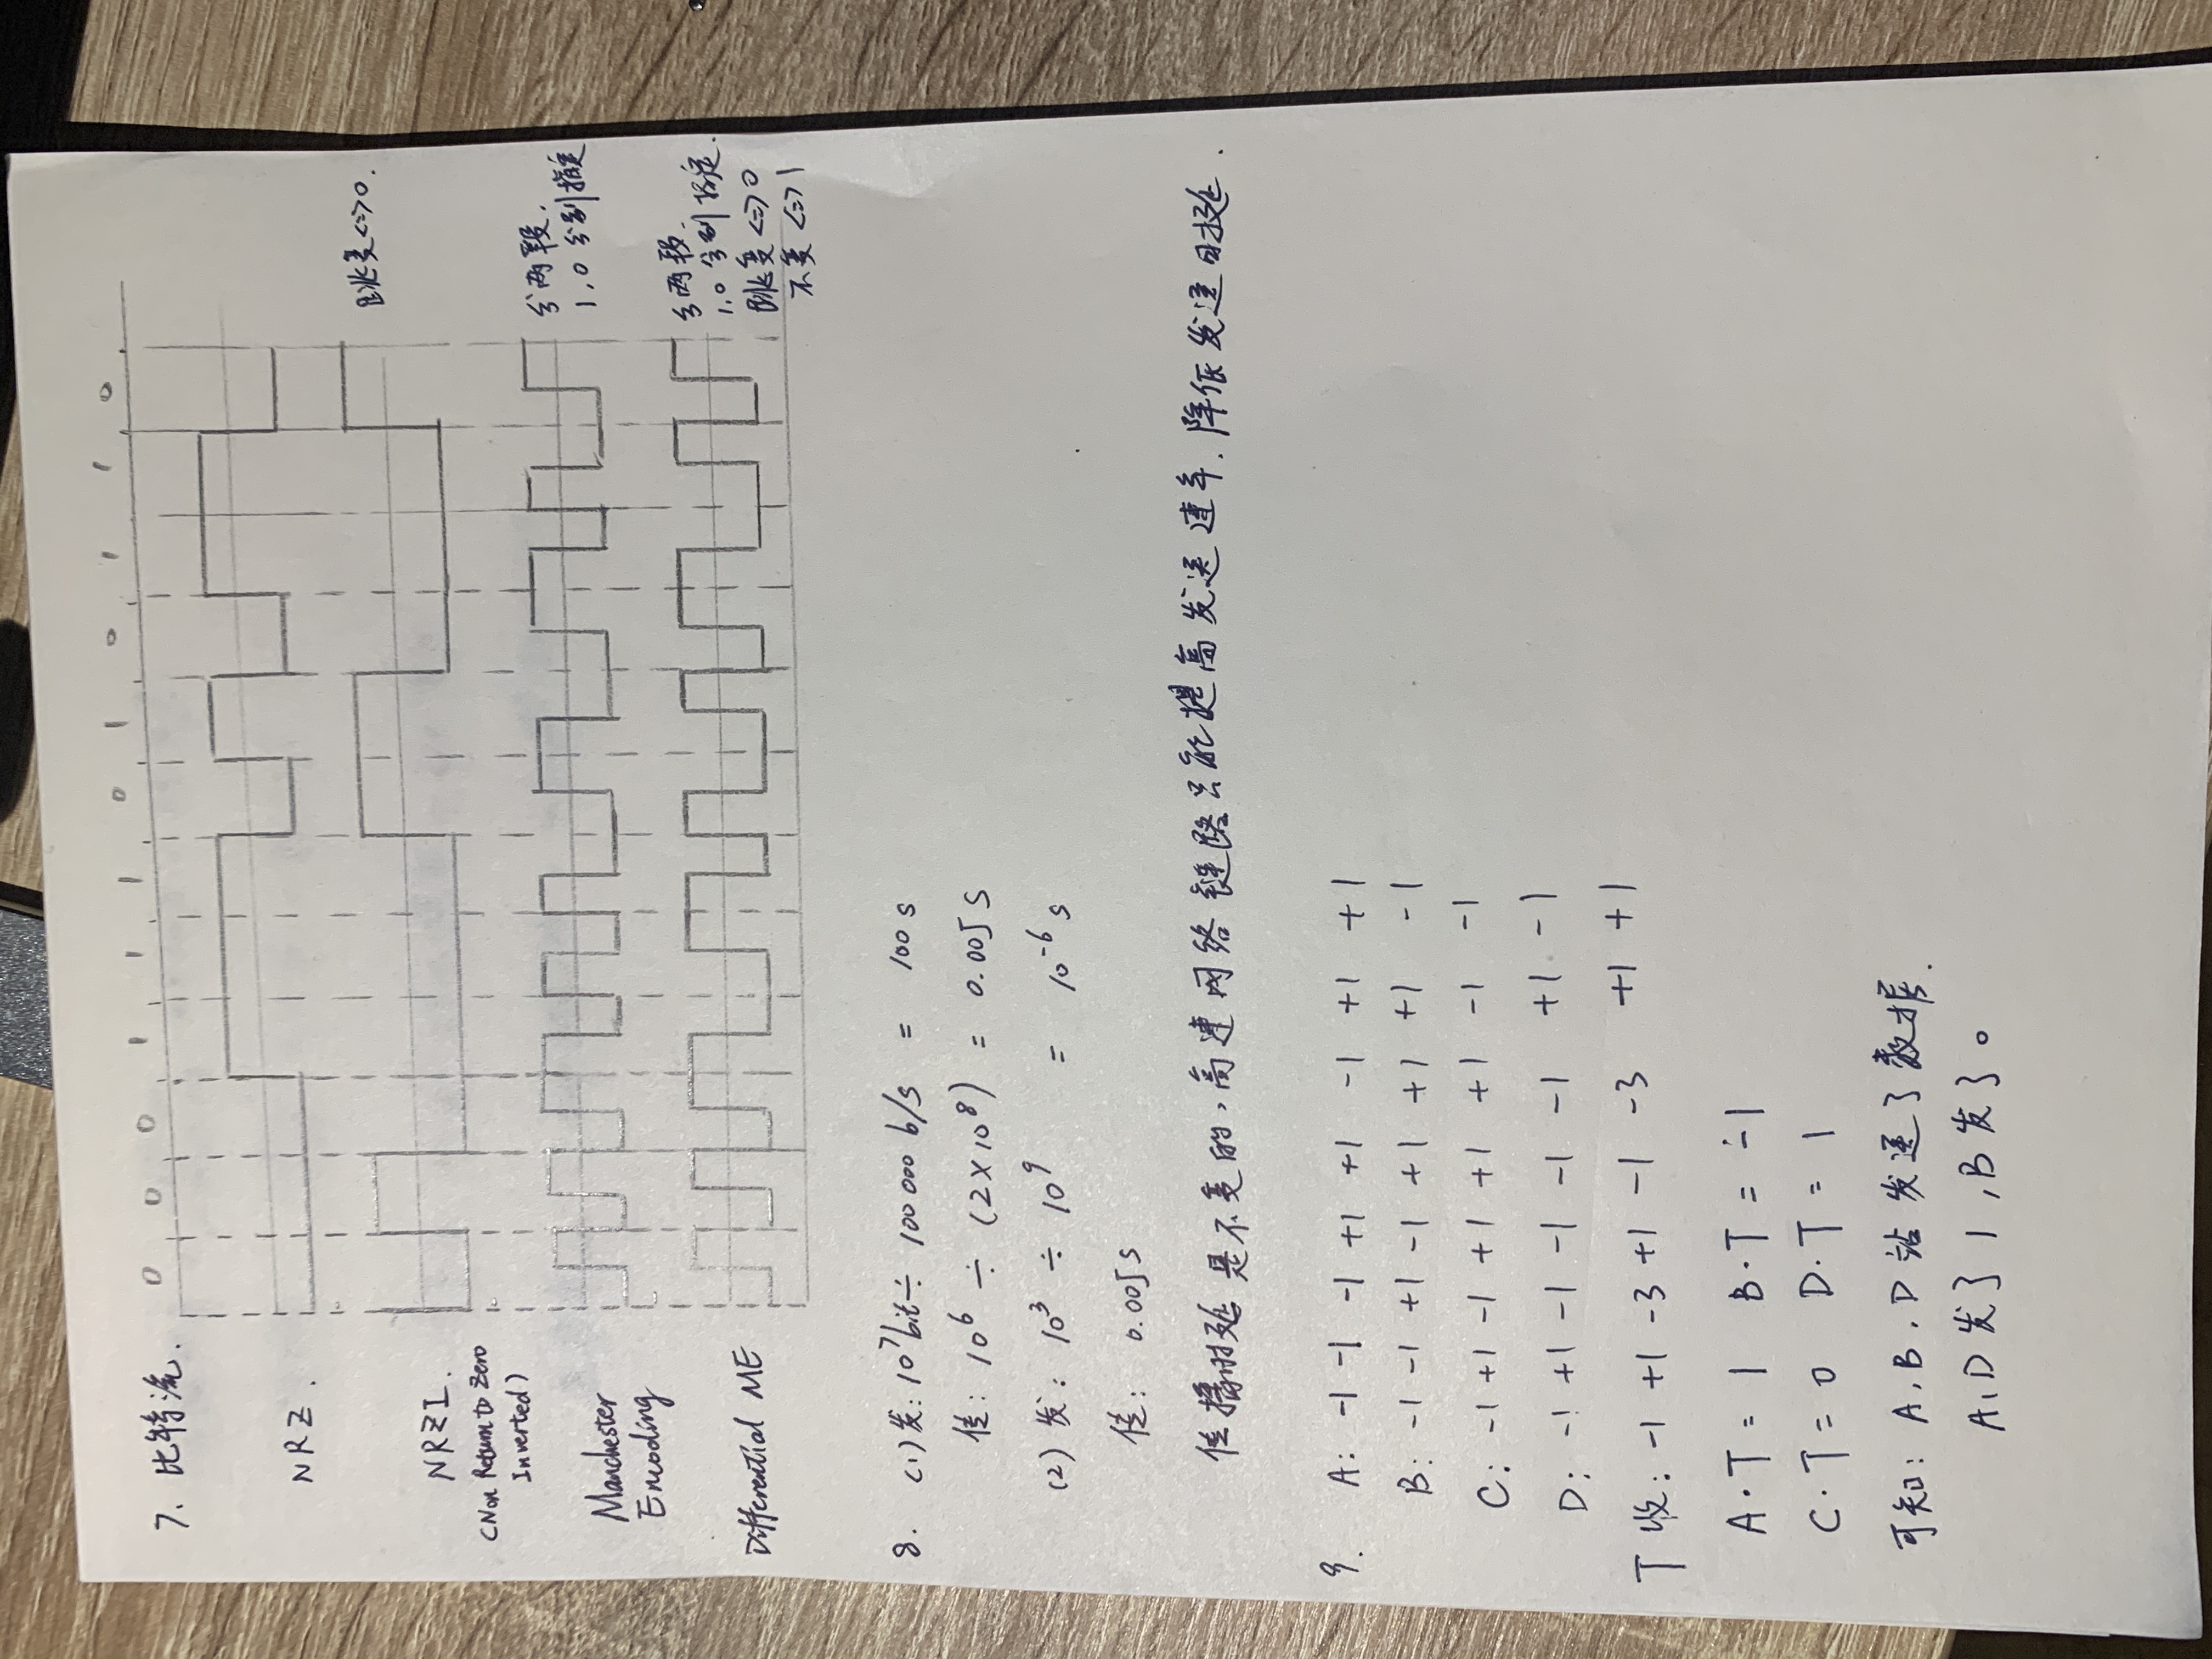 7. 比特流. 0 0 0 1 1 1 0 1 0 1 1 0
NRZ.
NRZI.
(Non Return to Zero
Inverted)
跳变<=>0.
Manchester
Encoding
分两段.
1,0分别指定
Differential ME
分两段.
1,0分别指定.
跳变<=>0
不变<=>1
8. (1) 发: 10⁷bit ÷ 100 000 b/s = 100 s
传: 10⁶ ÷ (2×10⁸) = 0.005 s
(2) 发: 10³ ÷ 10⁹ = 10⁻⁶ s
传: 0.005s
传播时延是不变的, 高速网络链路只能提高发送速率. 降低发送时延.
9. A: -1 -1 -1 +1 +1 -1 +1 +1
B: -1 -1 +1 -1 +1 +1 +1 -1
C: -1 +1 -1 +1 +1 +1 -1 -1
D: -1 +1 -1 -1 -1 -1 +1 -1
T收: -1 +1 -3 +1 -1 -3 +1 +1
A·T = 1 B·T = -1
C·T = 0 D·T = 1
可知: A, B, D 站发送了数据.
A,D发了1, B发了0